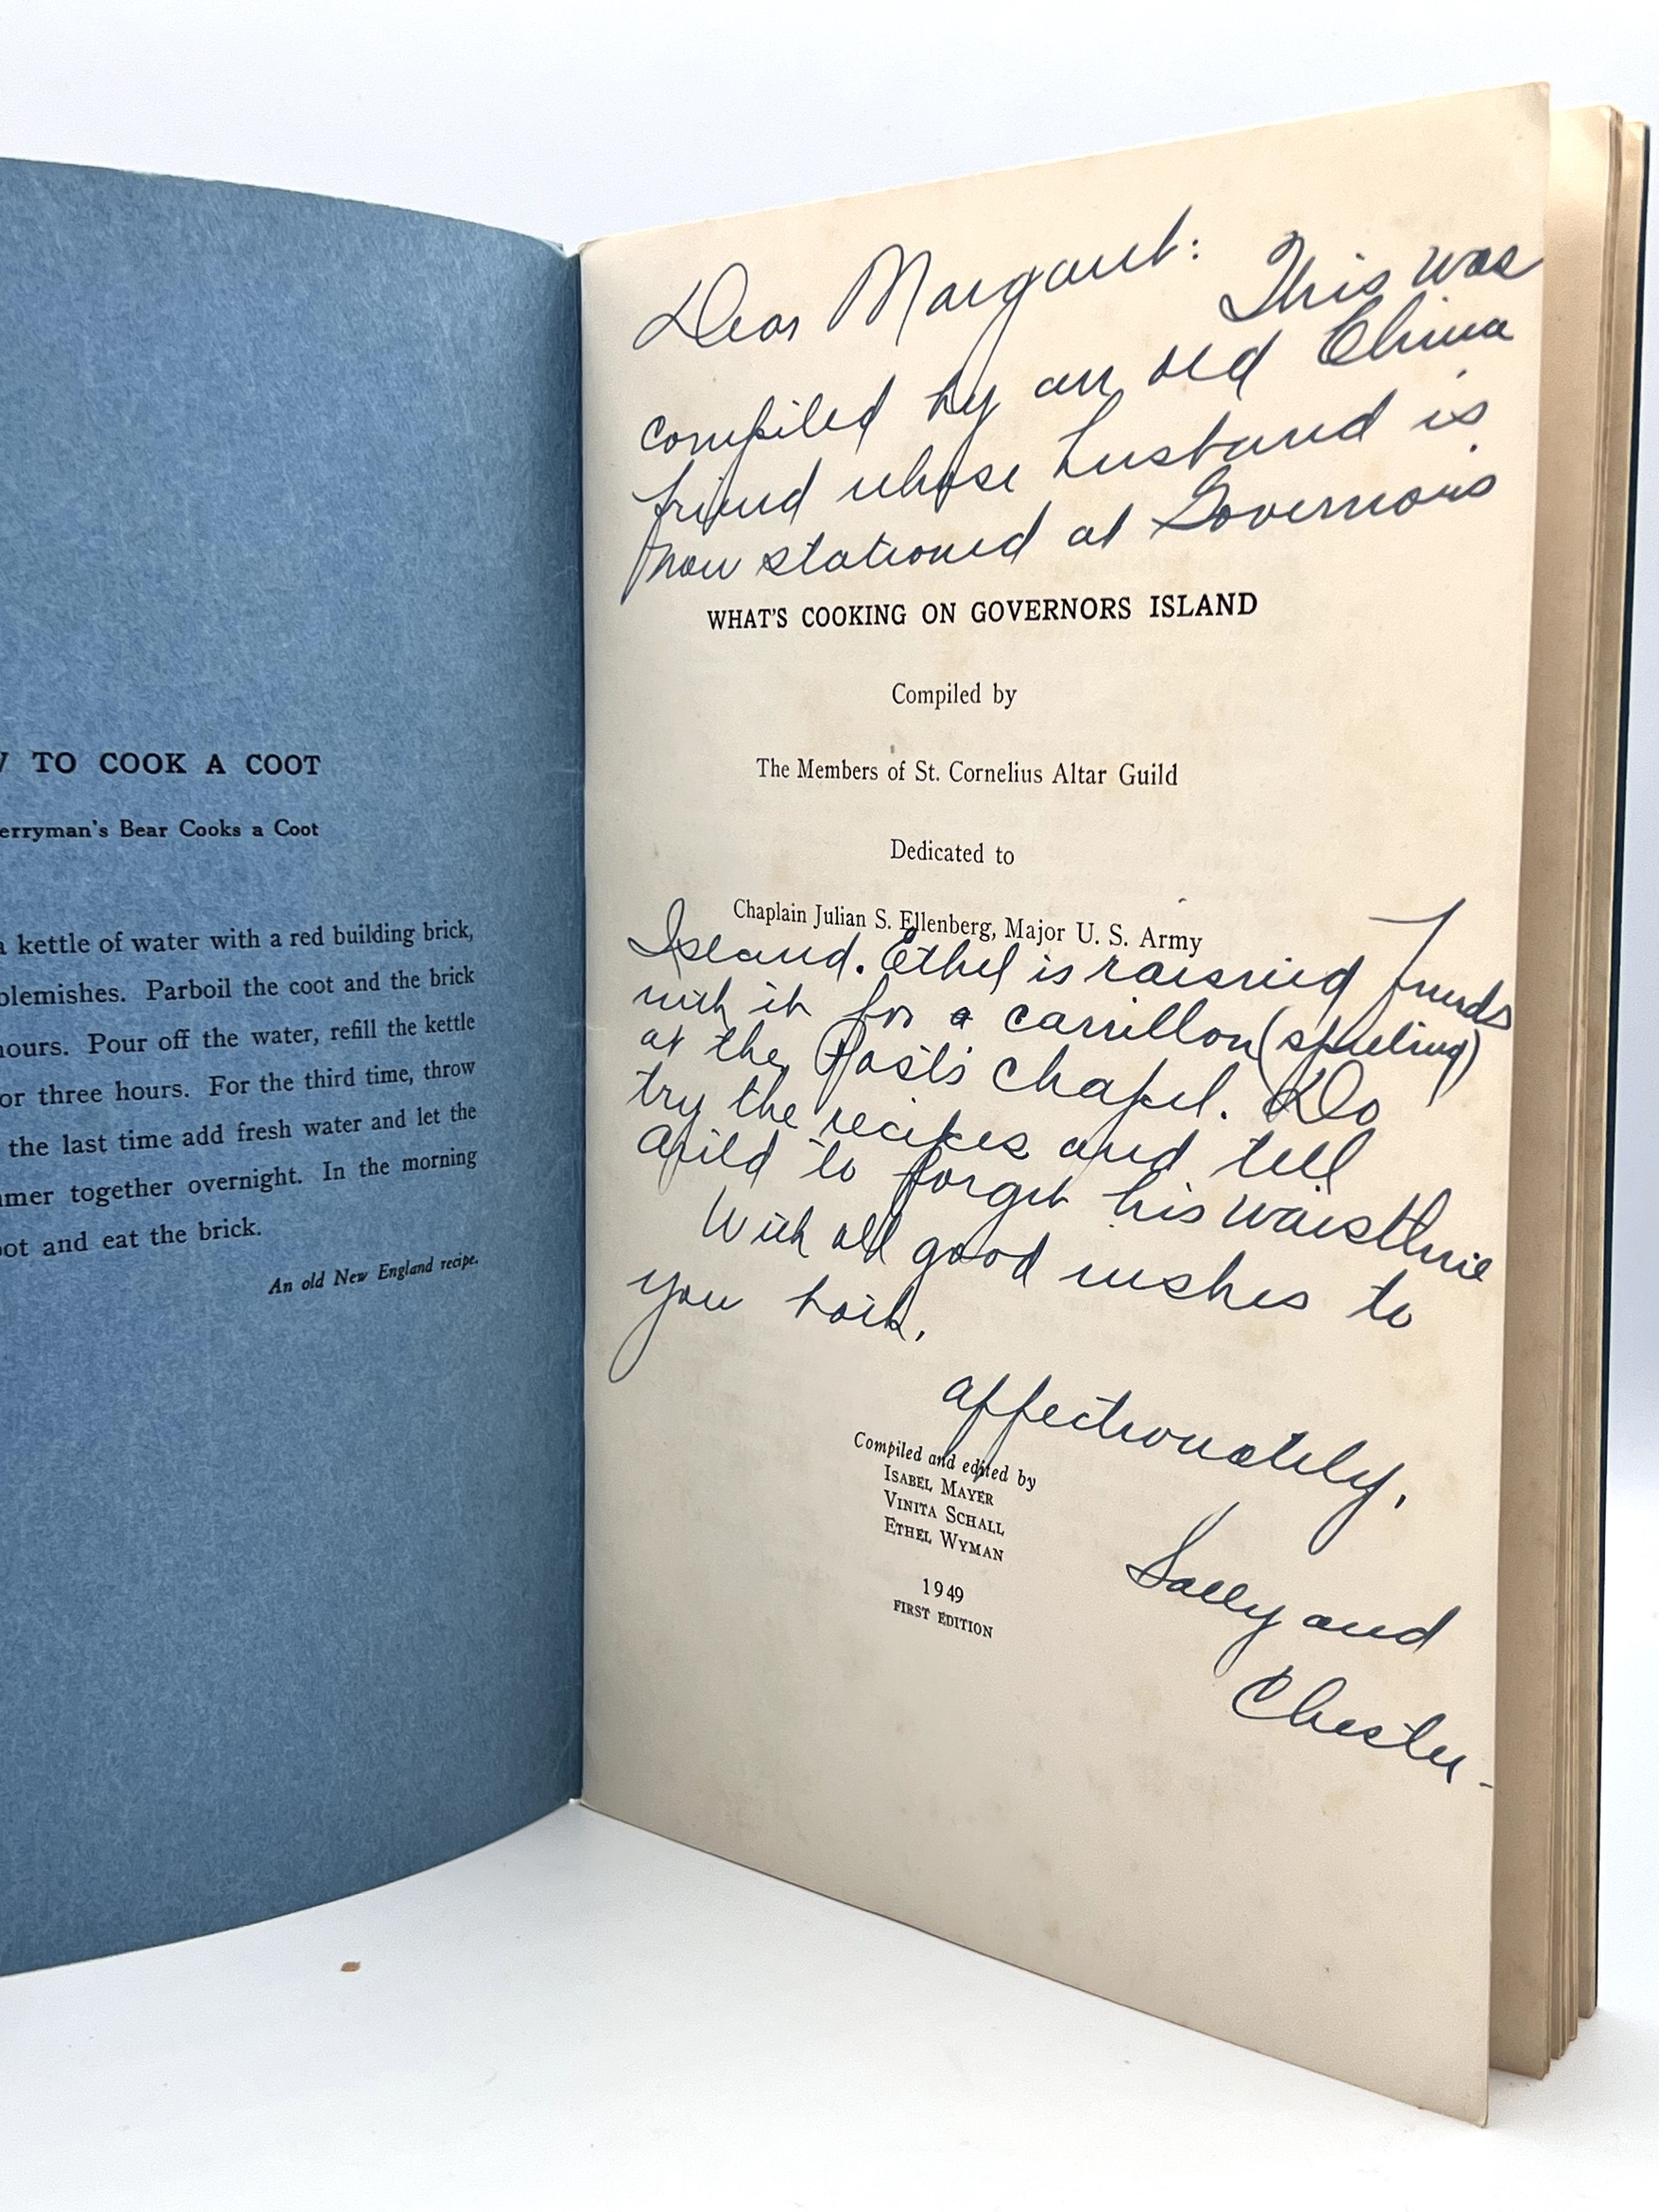 TO COOK A COOT
erryman's Bear Cooks a Coot
a kettle of water with a red building brick,
blemishes. Parboil the coot and the brick
hours. Pour off the water, refill the kettle
or three hours. For the third time, throw
the last time add fresh water and let the
mer together overnight. In the morning
oot and eat the brick.
An old New England recipe.
Dear Margaret: This was
compiled by an old China
friend whose husband is
now stationed at Governors
WHAT'S COOKING ON GOVERNORS ISLAND
Compiled by
The Members of St. Cornelius Altar Guild
Dedicated to
Chaplain Julian S. Ellenberg, Major U. S. Army
Island. Ethel is raising funds
with it for a carrillon (spelling)
at the Post's chapel. Do
try the recipes and tell
to forget his waistline
With all good wishes to
you both,
affectionately,
Compiled and edited by
ISABEL MAYER
VINITA SCHALL
ETHEL WYMAN
1949
FIRST EDITION
Sally and
Chester-